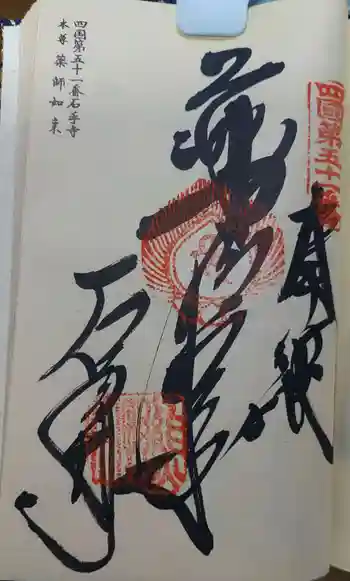 四國第五十一番
奉納
薬師如来
石手寺
四国第五十一番石手寺
本尊薬師如来